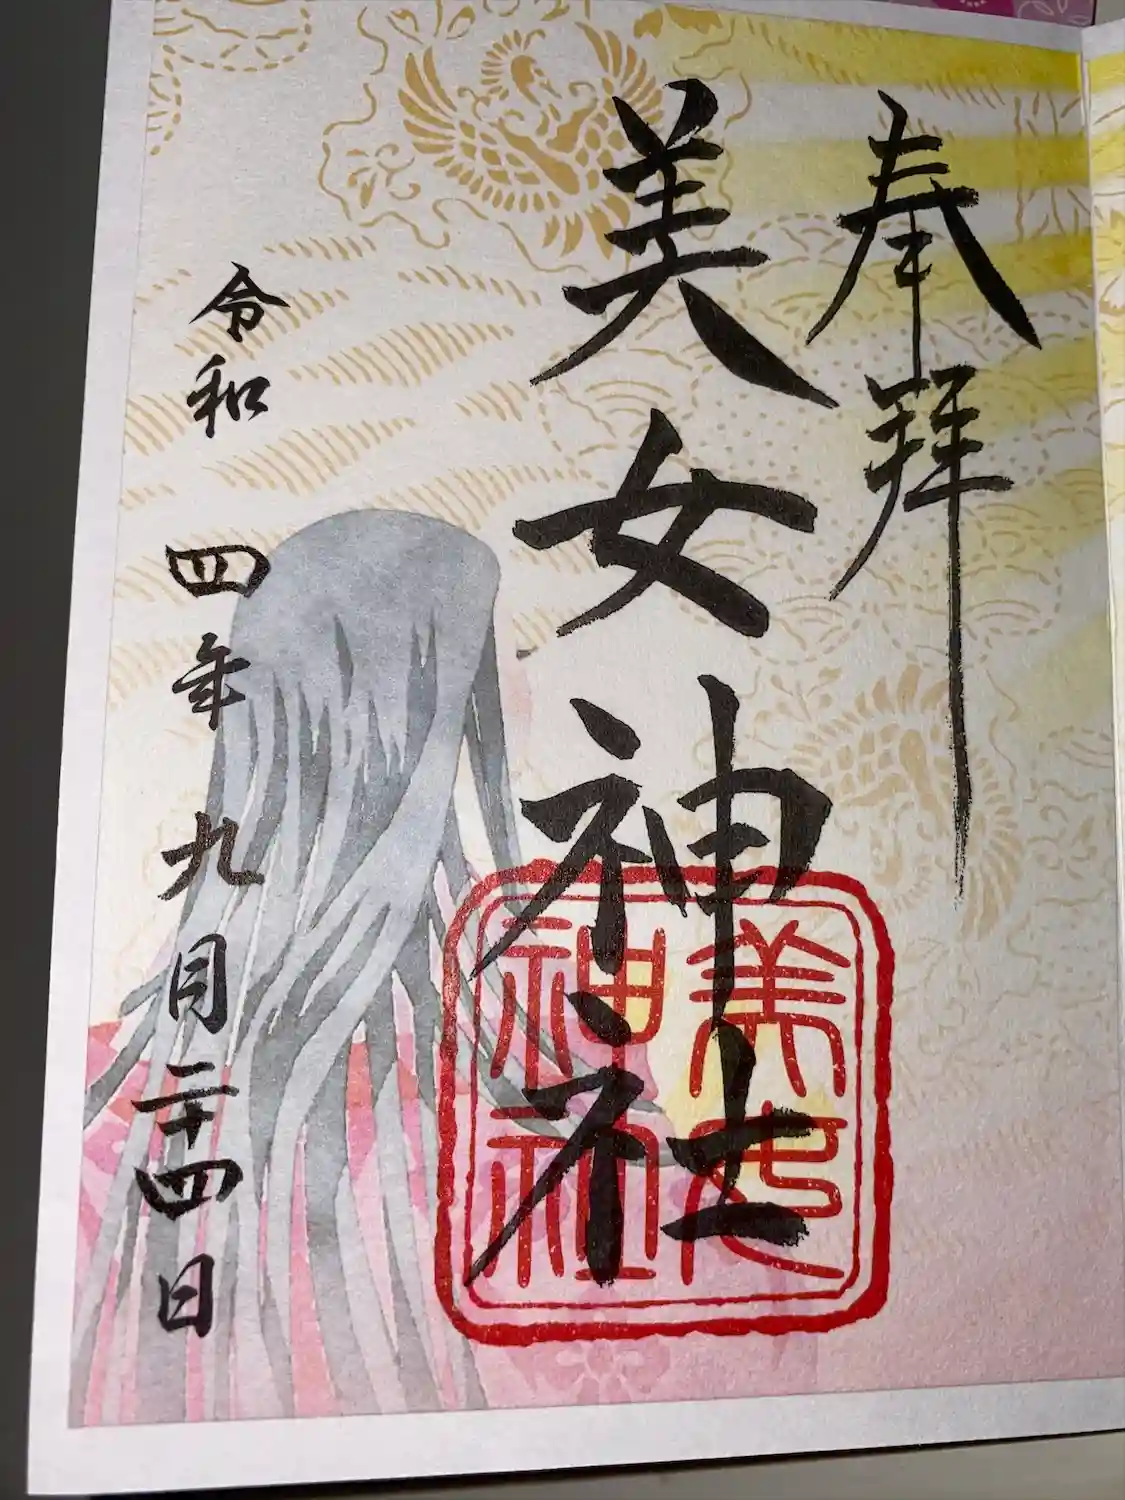 奉拝
美女神社
美女
神社
令和四年九月二十四日